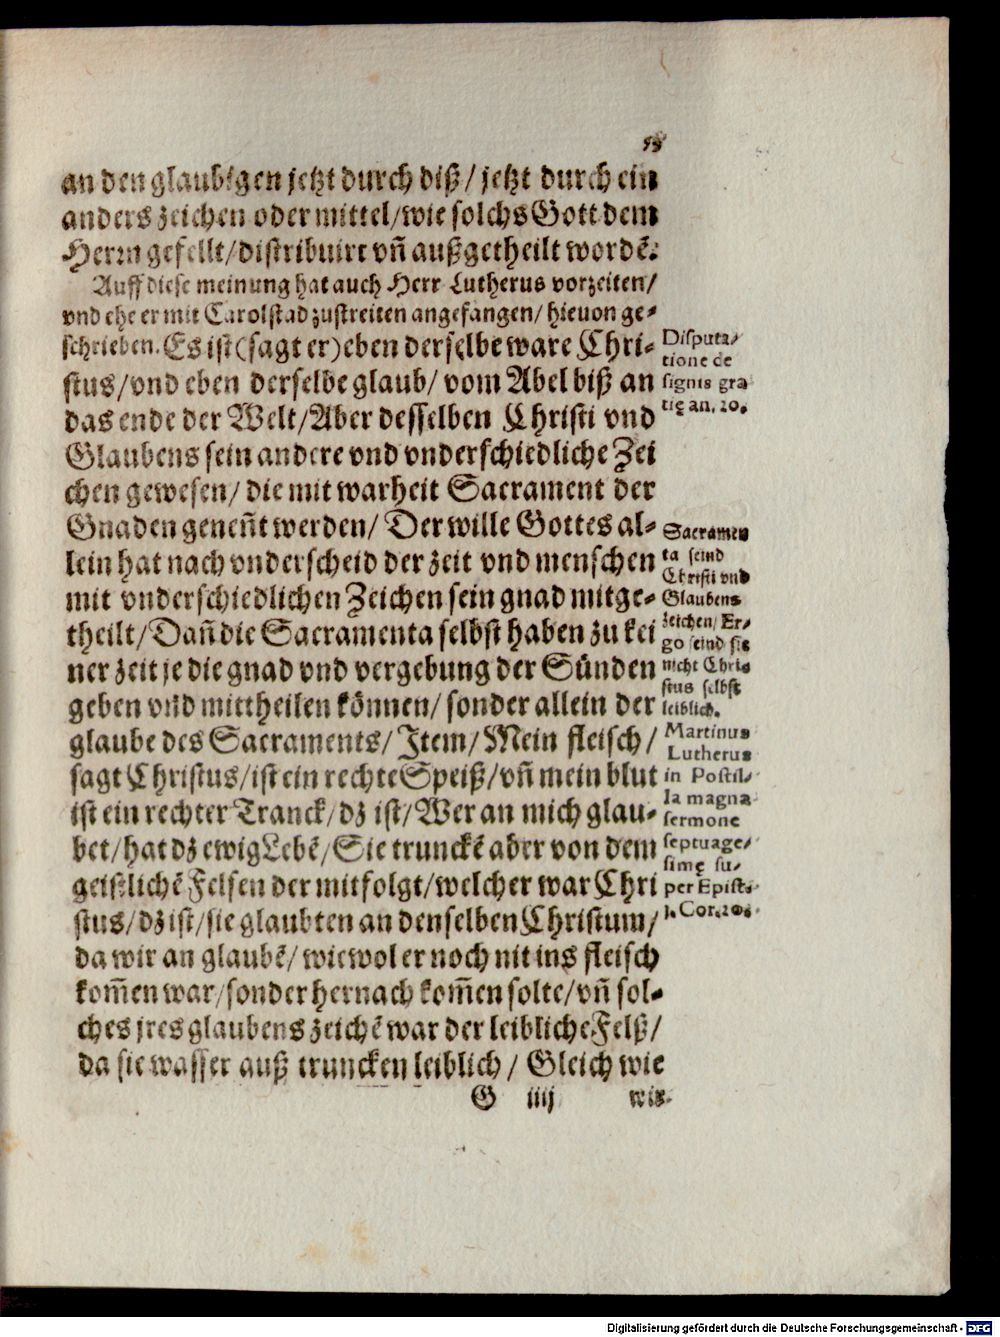 an den glaubigen jetzt durch diß/ jetzt durch ein
anders zeichen oder mittel/ wie solchs Gott dem
Herrn gefellt/ distribuirt vñ außgetheilt wordẽ.
Auff diese meinung hat auch Herr Lutherus vorzeiten/
vnd ehe er mit Carolstad zustreiten angefangen/ hieuon ge-
schrieben. Es ist (sagt er) eben derselbe ware Chri-
stus/ vnd eben derselbe glaub/ vom Abel biß an
das ende der Welt/ Aber desselben Christi vnd
Glaubens sein andere vnd vnderschiedliche Zei
chen gewesen/ die mit warheit Sacrament der
Gnaden geneñt werden/ Der wille Gottes al-
lein hat nach vnderscheid der zeit vnd menschen
mit vnderschiedlichen Zeichen sein gnad mitge-
theilt/ Dañ die Sacramenta selbst haben zu kei
ner zeit je die gnad vnd vergebung der Sünden
geben vnd mittheilen können/ sonder allein der
glaube des Sacraments/ Item/ Mein fleisch/
sagt Christus/ ist ein rechte Speiß/ vñ mein blut
ist ein rechter Tranck/ dz ist/ Wer an mich glau-
bet/ hat dz ewig Lebẽ/ Sie trunckẽ aber von dem
geistlichẽ Felsen der mitfolgt/ welcher war Chri
stus/ dz ist/ sie glaubten an denselben Christum/
da wir an glaubẽ/ wiewol er noch nit ins fleisch
kom̃en war/ sonder hernach kom̃en solte/ vñ sol-
ches jres glaubens zeichẽ war der leibliche Felß/
da sie wasser auß truncken leiblich/ Gleich wie
G iiij wir
Disputa-
tione de
signis gra
tię an. 20.
Sacramen
ta seind
Christi vnd
Glaubens
zeichen/ Er-
go seind sie
nicht Chri-
stus selbst
leiblich.
Martinus
Lutherus
in Postil-
la magna
sermone
septuage-
simę su-
per Epist.
1. Cor. 10.
Digitalisierung gefördert durch die Deutsche Forschungsgemeinschaft - DFG